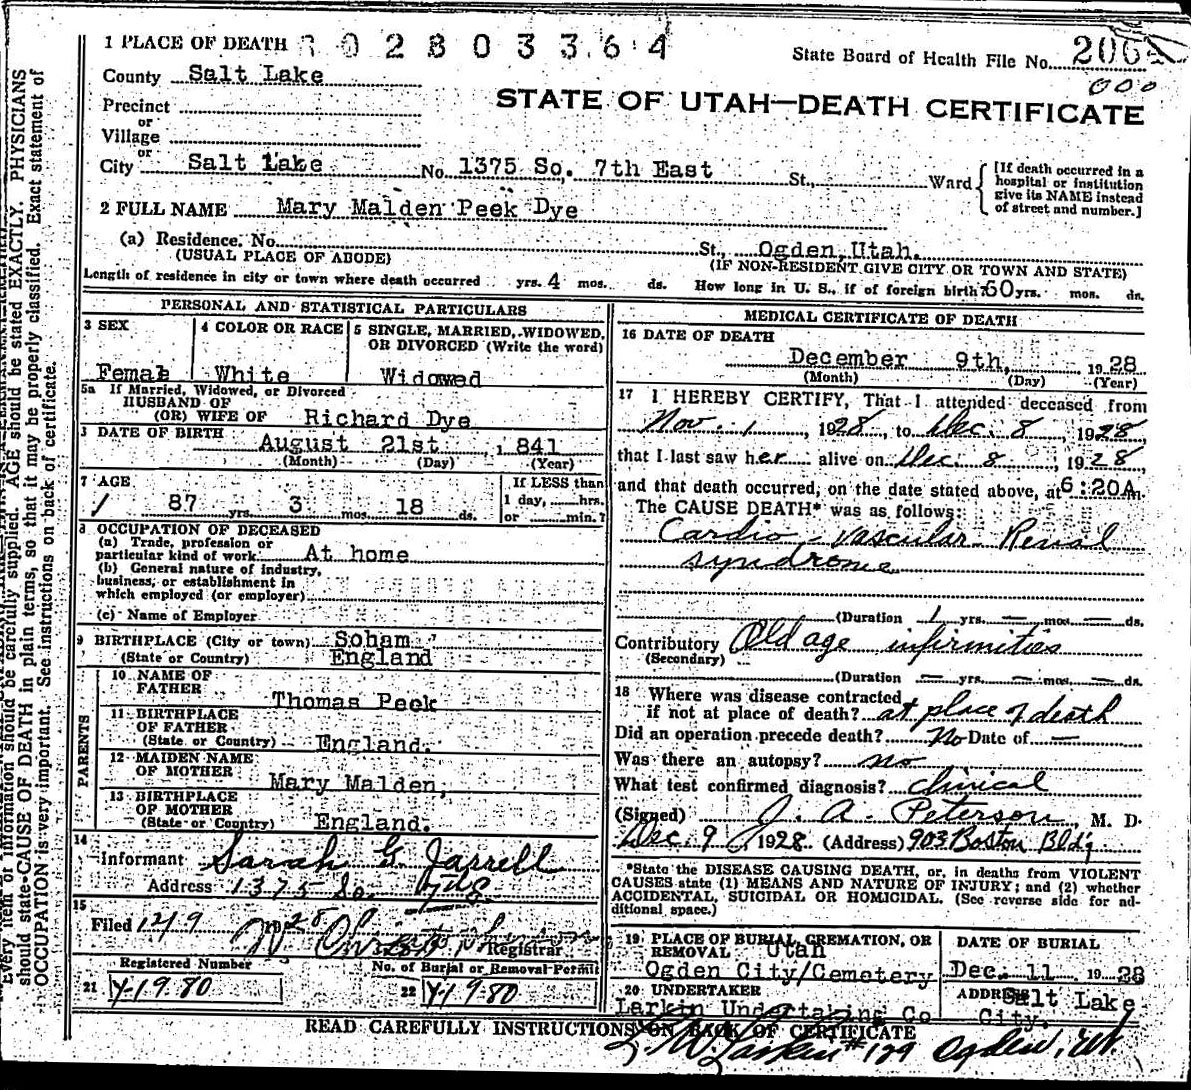 1 PLACE OF DEATH
State Board of Health File No. 206
County Salt Lake
000
STATE OF UTAH—DEATH CERTIFICATE
Precinct
or
Village
or
City Salt Lake No. 1375 So. 7th East St., Ward
[If death occurred in a
hospital or institution
give its NAME instead
of street and number.]
2 FULL NAME Mary Malden Peek Dye
(a) Residence. No. St., Ogden, Utah.
(USUAL PLACE OF ABODE) (IF NON-RESIDENT GIVE CITY OR TOWN AND STATE)
Length of residence in city or town where death occurred yrs. 4 mos. ds. How long in U. S., if of foreign birth? 60 yrs. mos. ds.
PERSONAL AND STATISTICAL PARTICULARS
3 SEX
Femal
4 COLOR OR RACE
White
5 SINGLE, MARRIED, WIDOWED,
OR DIVORCED (Write the word)
Widowed
5a If Married, Widowed, or Divorced
HUSBAND OF
(OR) WIFE OF Richard Dye
DATE OF BIRTH
August 21st, 1841
(Month) (Day) (Year)
7 AGE
87 yrs. 3 mos. 18 ds.
If LESS than
1 day, hrs.
or min.?
8 OCCUPATION OF DECEASED
(a) Trade, profession or
particular kind of work At home
(b) General nature of industry,
business, or establishment in
which employed (or employer)
(c) Name of Employer
9 BIRTHPLACE (City or town) Soham
(State or Country) England
PARENTS
10 NAME OF
FATHER Thomas Peek
11 BIRTHPLACE
OF FATHER
(State or Country) England.
12 MAIDEN NAME
OF MOTHER Mary Malden,
13 BIRTHPLACE
OF MOTHER
(State or Country) England.
14
Informant Sarah G. Jarrell
Address 1375 So.
15
Filed 1928
Registrar
Registered Number
21 Y-1980
No. of Burial or Removal Permit
22 Y-1980
MEDICAL CERTIFICATE OF DEATH
16 DATE OF DEATH
December 9th, 1928
(Month) (Day) (Year)
17 I HEREBY CERTIFY, That I attended deceased from
Nov. 1, 1928, to Dec. 8, 1928
that I last saw her alive on Dec. 8, 1928
and that death occurred, on the date stated above, at 6:20A m.
The CAUSE DEATH* was as follows:
Cardio-vascular-Renal
syndrome
(Duration 1 yrs. — mos. — ds.
Contributory Old age infirmities
(Secondary)
(Duration — yrs. — mos. — ds.
18 Where was disease contracted
if not at place of death? at place of death
Did an operation precede death? No Date of —
Was there an autopsy? no
What test confirmed diagnosis? clinical
(Signed) J. A. Peterson, M. D.
Dec 9, 1928 (Address) 903 Boston Bldg.
*State the DISEASE CAUSING DEATH, or, in deaths from VIOLENT
CAUSES state (1) MEANS AND NATURE OF INJURY; and (2) whether
ACCIDENTAL, SUICIDAL OR HOMICIDAL. (See reverse side for ad-
ditional space.)
19 PLACE OF BURIAL, CREMATION, OR
REMOVAL Utah
Ogden City/Cemetery
DATE OF BURIAL
Dec. 11 1928
20 UNDERTAKER
Larkin Undertaking Co
ADDRESS Salt Lake
City,
READ CAREFULLY INSTRUCTIONS ON BACK OF CERTIFICATE
Larkin #129 Ogden, Ut.
should state CAUSE OF DEATH in plain terms, so that it may be properly classified. Exact statement of
OCCUPATION is very important. See instructions on back of certificate.